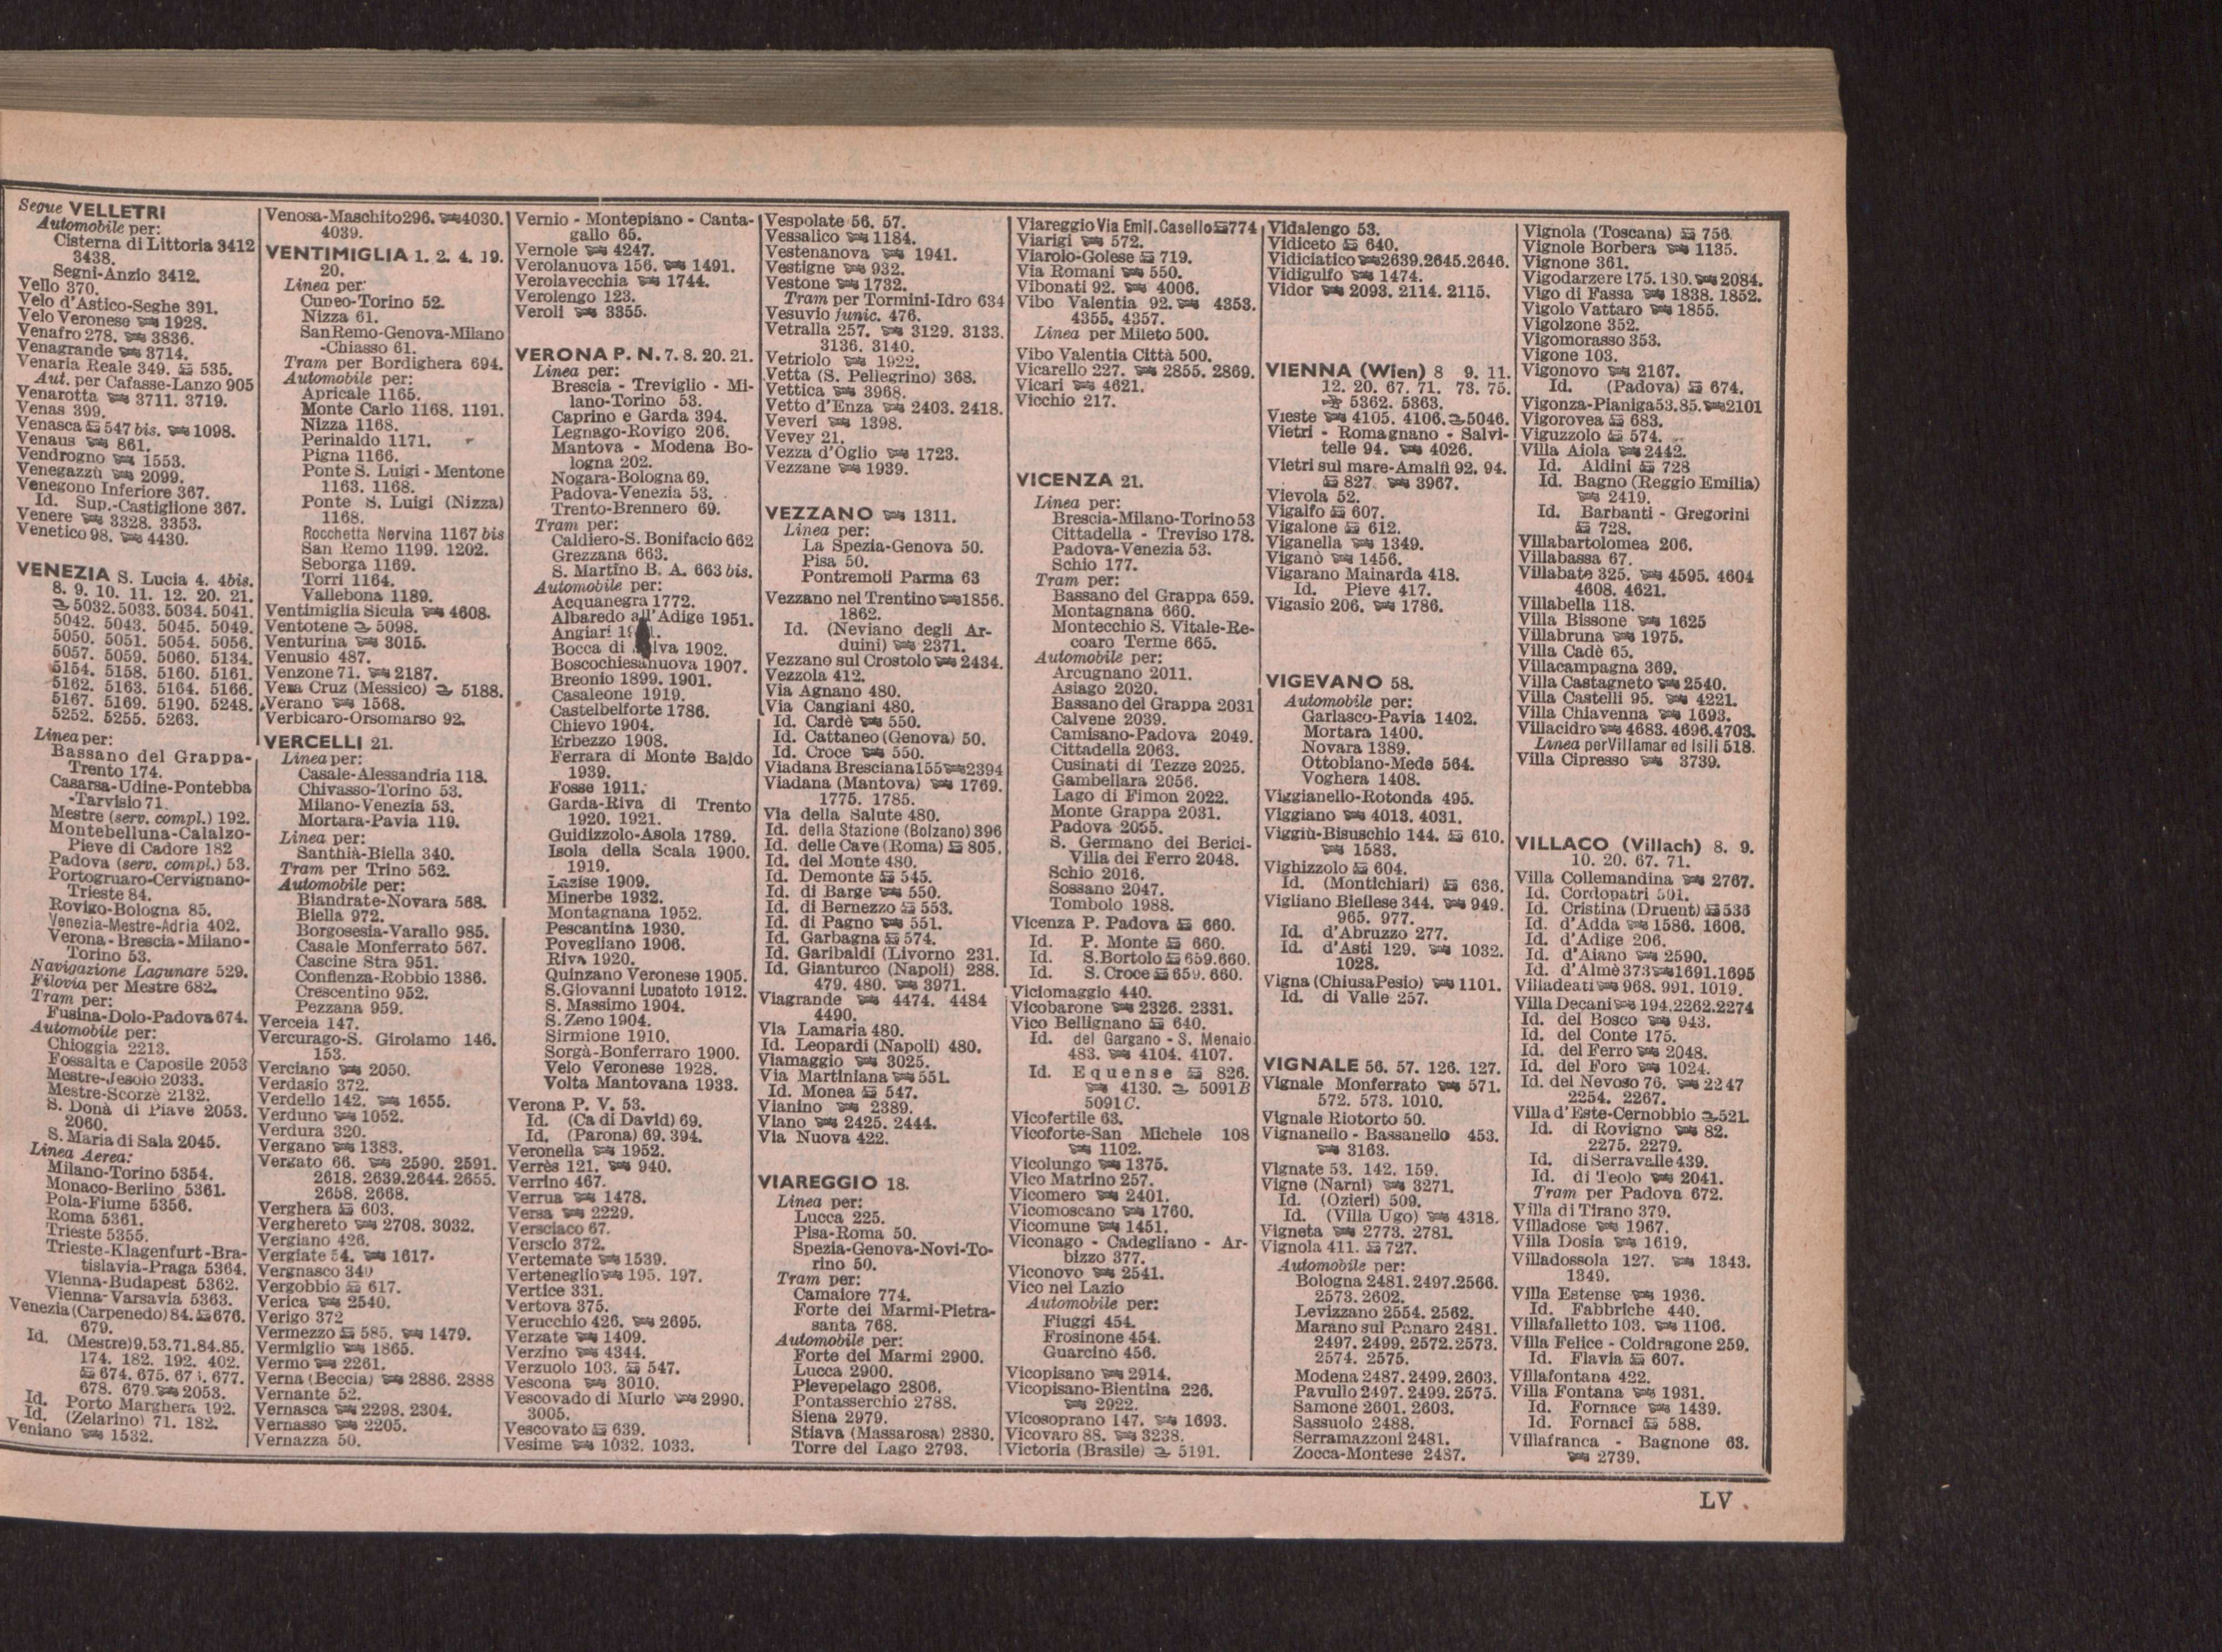 Segue VELLETRI
Automobile per:
Cisterna di Littoria 3412
3438.
Segni-Anzio 3412.
Vello 370.
Velo d'Astico-Seghe 391.
Velo Veronese 1928.
Venafro 278. 3836.
Venagrande 3714.
Venaria Reale 349. 535.
Aut. per Cafasse-Lanzo 905
Venarotta 3711. 3719.
Venas 399.
Venasca 547 bis. 1098.
Venaus 861.
Vendrogno 1553.
Venegazzù 2099.
Venegono Inferiore 367.
Id. Sup.-Castiglione 367.
Venere 3328. 3353.
Venetico 98. 4430.
VENEZIA S. Lucia 4. 4bis.
8. 9. 10. 11. 12. 20. 21.
5032. 5033. 5034. 5041.
5042. 5043. 5045. 5049.
5050. 5051. 5054. 5056.
5057. 5059. 5060. 5134.
5154. 5158. 5160. 5161.
5162. 5163. 5164. 5166.
5167. 5169. 5190. 5248.
5252. 5255. 5263.
Linea per:
Bassano del Grappa-
Trento 174.
Casarsa-Udine-Pontebba
-Tarvisio 71.
Mestre (serv. compl.) 192.
Montebelluna-Calalzo-
Pieve di Cadore 182
Padova (serv. compl.) 53.
Portogruaro-Cervignano-
Trieste 84.
Rovigo-Bologna 85.
Venezia-Mestre-Adria 402.
Verona-Brescia-Milano-
Torino 53.
Navigazione Lagunare 529.
Filovia per Mestre 682.
Tram per:
Fusina-Dolo-Padova 674.
Automobile per:
Chioggia 2213.
Fossalta e Caposile 2053
Mestre-Jesolo 2033.
Mestre-Scorzè 2132.
S. Donà di Piave 2053.
2060.
S. Maria di Sala 2045.
Linea Aerea:
Milano-Torino 5354.
Monaco-Berlino 5361.
Pola-Fiume 5356.
Roma 5361.
Trieste 5355.
Trieste-Klagenfurt-Bra-
tislavia-Praga 5364.
Vienna-Budapest 5362.
Vienna-Varsavia 5363.
Venezia (Carpenedo) 84. 676.
679.
Id. (Mestre) 9.53.71.84.85.
174. 182. 192. 402.
674. 675. 677.
678. 679. 2053.
Id. Porto Marghera 192.
Id. (Zelarino) 71. 182.
Veniano 1532.
Venosa-Maschito 296. 4030.
4039.
VENTIMIGLIA 1. 2. 4. 19.
20.
Linea per:
Cuneo-Torino 52.
Nizza 61.
San Remo-Genova-Milano
-Chiasso 61.
Tram per Bordighera 694.
Automobile per:
Apricale 1165.
Monte Carlo 1168. 1191.
Nizza 1168.
Perinaldo 1171.
Pigna 1166.
Ponte S. Luigi - Mentone
1163. 1168.
Ponte S. Luigi (Nizza)
1168.
Rocchetta Nervina 1167 bis
San Remo 1199. 1202.
Seborga 1169.
Torri 1164.
Vallebona 1189.
Ventimiglia Sicula 4608.
Ventotene 5098.
Venturina 3015.
Venusio 487.
Venzone 71. 2187.
Vera Cruz (Messico) 5188.
Verano 1568.
Verbicaro-Orsomarso 92.
VERCELLI 21.
Linea per:
Casale-Alessandria 118.
Chivasso-Torino 53.
Milano-Venezia 53.
Mortara-Pavia 119.
Linea per:
Santhià-Biella 340.
Tram per Trino 562.
Automobile per:
Biandrate-Novara 568.
Biella 972.
Borgosesia-Varallo 985.
Casale Monferrato 567.
Cascine Stra 951.
Confienza-Robbio 1386.
Crescentino 952.
Pezzana 959.
Verceia 147.
Vercurago-S. Girolamo 146.
153.
Verciano 2050.
Verdasio 372.
Verdello 142. 1655.
Verduno 1052.
Verdura 320.
Vergano 1383.
Vergato 66. 2590. 2591.
2618. 2639.2644. 2655.
2658. 2668.
Verghera 603.
Verghereto 2708. 3032.
Vergiano 426.
Vergiate 54. 1617.
Vergnasco 340
Vergobbio 617.
Verica 2540.
Verigo 372
Vermezzo 585. 1479.
Vermiglio 1865.
Vermo 2261.
Verna (Beccia) 2886. 2888
Vernante 52.
Vernasca 2298. 2304.
Vernasso 2205.
Vernazza 50.
Vernio - Montepiano - Canta-
gallo 65.
Vernole 4247.
Verolanuova 156. 1491.
Verolavecchia 1744.
Verolengo 123.
Veroli 3355.
VERONA P. N. 7. 8. 20. 21.
Linea per:
Brescia - Treviglio - Mi-
lano-Torino 53.
Caprino e Garda 394.
Legnago-Rovigo 206.
Mantova - Modena Bo-
logna 202.
Nogara-Bologna 69.
Padova-Venezia 53.
Trento-Brennero 69.
Tram per:
Caldiero-S. Bonifacio 662
Grezzana 663.
S. Martino B. A. 663 bis.
Automobile per:
Acquanegra 1772.
Albaredo all'Adige 1951.
Angiari
Bocca di 1902.
Boscochiesanuova 1907.
Breonio 1899. 1901.
Casaleone 1919.
Castelbelforte 1786.
Chievo 1904.
Erbezzo 1908.
Ferrara di Monte Baldo
1939.
Fosse 1911.
Garda-Riva di Trento
1920. 1921.
Guidizzolo-Asola 1789.
Isola della Scala 1900.
1919.
Lazise 1909.
Minerbe 1932.
Montagnana 1952.
Pescantina 1930.
Povegliano 1906.
Riva 1920.
Quinzano Veronese 1905.
S. Giovanni Lupatoto 1912.
S. Massimo 1904.
S. Zeno 1904.
Sirmione 1910.
Sorgà-Bonferraro 1900.
Velo Veronese 1928.
Volta Mantovana 1933.
Verona P. V. 53.
Id. (Ca di David) 69.
Id. (Parona) 69. 394.
Veronella 1952.
Verrès 121. 940.
Verrino 467.
Verrua 1478.
Versa 2229.
Versciaco 67.
Verscio 372.
Vertemate 1539.
Verteneglio 195. 197.
Vertice 331.
Vertova 375.
Verucchio 426. 2695.
Verzate 1409.
Verzino 4344.
Verzuolo 103. 547.
Vescona 3010.
Vescovado di Murlo 2990.
3005.
Vescovato 639.
Vesime 1032. 1033.
Vespolate 56. 57.
Vessalico 1184.
Vestenanova 1941.
Vestigne 932.
Vestone 1732.
Tram per Tormini-Idro 634
Vesuvio funic. 476.
Vetralla 257. 3129. 3133.
3136. 3140.
Vetriolo 1922.
Vetta (S. Pellegrino) 368.
Vettica 3968.
Vetto d'Enza 2403. 2418.
Veveri 1398.
Vevey 21.
Vezza d'Oglio 1723.
Vezzane 1939.
VEZZANO 1311.
Linea per:
La Spezia-Genova 50.
Pisa 50.
Pontremoli Parma 63
Vezzano nel Trentino 1856.
1862.
Id. (Neviano degli Ar-
duini) 2371.
Vezzano sul Crostolo 2434.
Vezzola 412.
Via Agnano 480.
Via Cangiani 480.
Id. Cardè 550.
Id. Cattaneo (Genova) 50.
Id. Croce 550.
Viadana Bresciana 155 2394
Viadana (Mantova) 1769.
1775. 1785.
Via della Salute 480.
Id. della Stazione (Bolzano) 396
Id. delle Cave (Roma) 805.
Id. del Monte 480.
Id. Demonte 545.
Id. di Barge 550.
Id. di Bernezzo 553.
Id. di Pagno 551.
Id. Garbagna 574.
Id. Garibaldi (Livorno 231.
Id. Gianturco (Napoli) 288.
479. 480. 3971.
Viagrande 4474. 4484
4490.
Via Lamaria 480.
Id. Leopardi (Napoli) 480.
Viamaggio 3025.
Via Martiniana 551.
Id. Monea 547.
Vianino 2389.
Viano 2425. 2444.
Via Nuova 422.
VIAREGGIO 18.
Linea per:
Lucca 225.
Pisa-Roma 50.
Spezia-Genova-Novi-To-
rino 50.
Tram per:
Camaiore 774.
Forte dei Marmi-Pietra-
santa 768.
Automobile per:
Forte dei Marmi 2900.
Lucca 2900.
Pievepelago 2806.
Pontasserchio 2788.
Siena 2979.
Stiava (Massarosa) 2830.
Torre del Lago 2793.
Viareggio Via Emil. Casello 774
Viarigi 572.
Viarolo-Golese 719.
Via Romani 550.
Vibonati 92. 4006.
Vibo Valentia 92. 4353.
4355. 4357.
Linea per Mileto 500.
Vibo Valentia Città 500.
Vicarello 227. 2855. 2869.
Vicari 4621.
Vicchio 217.
VICENZA 21.
Linea per:
Brescia-Milano-Torino 53
Cittadella - Treviso 178.
Padova-Venezia 53.
Schio 177.
Tram per:
Bassano del Grappa 659.
Montagnana 660.
Montecchio S. Vitale-Re-
coaro Terme 665.
Automobile per:
Arcugnano 2011.
Asiago 2020.
Bassano del Grappa 2031
Calvene 2039.
Camisano-Padova 2049.
Cittadella 2063.
Cusinati di Tezze 2025.
Gambellara 2056.
Lago di Fimon 2022.
Monte Grappa 2031.
Padova 2055.
S. Germano dei Berici-
Villa del Ferro 2048.
Schio 2016.
Sossano 2047.
Tombolo 1988.
Vicenza P. Padova 660.
Id. P. Monte 660.
Id. S. Bortolo 659.660.
Id. S. Croce 659. 660.
Viciomaggio 440.
Vicobarone 2326. 2331.
Vico Bellignano 640.
Id. del Gargano - S. Menaio
483. 4104. 4107.
Id. Equense 826.
4130. 5091B
5091C.
Vicofertile 63.
Vicoforte-San Michele 108
1102.
Vicolungo 1375.
Vico Matrino 257.
Vicomero 2401.
Vicomoscano 1760.
Vicomune 1451.
Viconago - Cadegliano - Ar-
bizzo 377.
Viconovo 2541.
Vico nel Lazio
Automobile per:
Fiuggi 454.
Frosinone 454.
Guarcino 456.
Vicopisano 2914.
Vicopisano-Bientina 226.
2922.
Vicosoprano 147. 1693.
Vicovaro 88. 3238.
Victoria (Brasile) 5191.
Vidalengo 53.
Vidiceto 640.
Vidiciatico 2639.2645.2646.
Vidigulfo 1474.
Vidor 2093. 2114. 2115.
VIENNA (Wien) 8 9. 11.
12. 20. 67. 71. 73. 75.
5362. 5363.
Vieste 4105. 4106. 5046.
Vietri - Romagnano - Salvi-
telle 94. 4026.
Vietri sul mare-Amalfi 92. 94.
827. 3967.
Vievola 52.
Vigalfo 607.
Vigalone 612.
Viganella 1349.
Viganò 1456.
Vigarano Mainarda 418.
Id. Pieve 417.
Vigasio 206. 1786.
VIGEVANO 58.
Automobile per:
Garlasco-Pavia 1402.
Mortara 1400.
Novara 1389.
Ottobiano-Mede 564.
Voghera 1408.
Viggianello-Rotonda 495.
Viggiano 4013. 4031.
Viggiù-Bisuschio 144. 610.
1583.
Vighizzolo 604.
Id. (Montichiari) 636.
Vigliano Biellese 344. 949.
965. 977.
Id. d'Abruzzo 277.
Id. d'Asti 129. 1032.
1028.
Vigna (Chiusa Pesio) 1101.
Id. di Valle 257.
VIGNALE 56. 57. 126. 127.
Vignale Monferrato 571.
572. 573. 1010.
Vignale Riotorto 50.
Vignanello - Bassanello 453.
3163.
Vignate 53. 142. 159.
Vigne (Narni) 3271.
Id. (Ozieri) 509.
Id. (Villa Ugo) 4318.
Vigneta 2773. 2781.
Vignola 411. 727.
Automobile per:
Bologna 2481.2497.2566.
2573. 2602.
Levizzano 2554. 2562.
Marano sul Panaro 2481.
2497. 2499. 2572.2573.
2574. 2575.
Modena 2487.2499.2603.
Pavullo 2497. 2499. 2575.
Samone 2601. 2603.
Sassuolo 2488.
Serramazzoni 2481.
Zocca-Montese 2487.
Vignola (Toscana) 756.
Vignole Borbera 1135.
Vignone 361.
Vigodarzere 175. 180. 2084.
Vigo di Fassa 1838. 1852.
Vigolo Vattaro 1855.
Vigolzone 352.
Vigomorasso 353.
Vigone 103.
Vigonovo 2167.
Id. (Padova) 674.
Vigonza-Pianiga 53.85. 2101
Vigorovea 683.
Viguzzolo 574.
Villa Aiola 2442.
Id. Aldini 728
Id. Bagno (Reggio Emilia)
2419.
Id. Barbanti - Gregorini
728.
Villabartolomea 206.
Villabassa 67.
Villabate 325. 4595. 4604
4608. 4621.
Villabella 118.
Villa Bissone 1625
Villabruna 1975.
Villa Cadè 65.
Villacampagna 369.
Villa Castagneto 2540.
Villa Castelli 95. 4221.
Villa Chiavenna 1693.
Villacidro 4683. 4696.4703.
Linea per Villamar ed Isili 518.
Villa Cipresso 3739.
VILLACO (Villach) 8. 9.
10. 20. 67. 71.
Villa Collemandina 2767.
Id. Cordopatri 501.
Id. Cristina (Druent) 536
Id. d'Adda 1586. 1606.
Id. d'Adige 206.
Id. d'Aiano 2590.
Id. d'Almè 373 1691.1695
Villadeati 968. 991. 1019.
Villa Decani 194.2262.2274
Id. del Bosco 943.
Id. del Conte 175.
Id. del Ferro 2048.
Id. del Foro 1024.
Id. del Nevoso 76. 2247
2254. 2267.
Villa d'Este-Cernobbio 521.
Id. di Rovigno 82.
2275. 2279.
Id. di Serravalle 439.
Id. di Teolo 2041.
Tram per Padova 672.
Villa di Tirano 379.
Villadose 1967.
Villa Dosia 1619.
Villadossola 127. 1343.
1349.
Villa Estense 1936.
Id. Fabbriche 440.
Villafalletto 103. 1106.
Villa Felice - Coldragone 259.
Id. Flavia 607.
Villafontana 422.
Villa Fontana 1931.
Id. Fornace 1439.
Id. Fornaci 588.
Villafranca - Bagnone 63.
2739.
LV